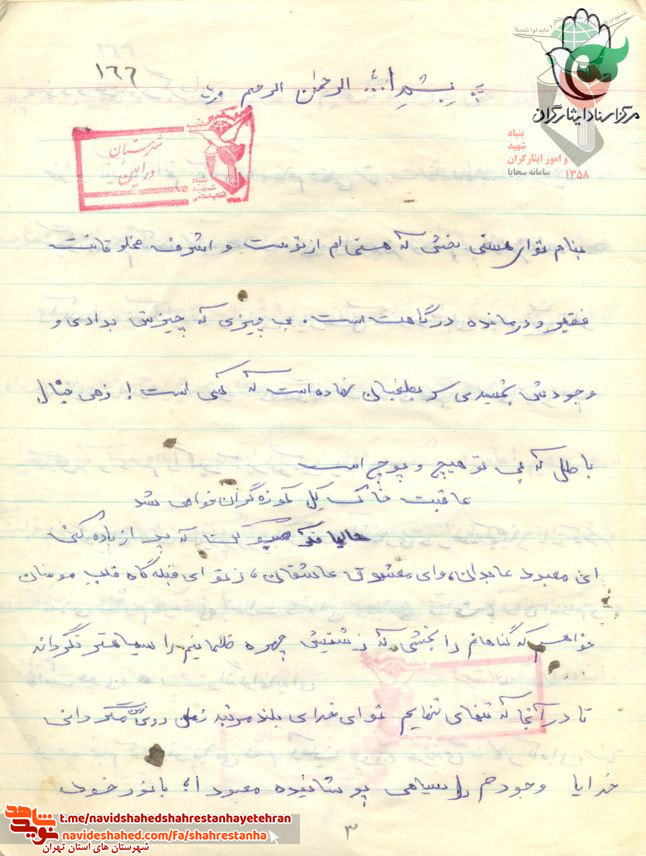 ۱۶۶
بسم الله الرحمن الرحیم
مرکز اسناد ایثارگران
بنیاد
شهید
و امور ایثارگران
۱۳۵۸ سامانه سجایا
شهرستان
ورامین
بنام تو ای هستی بخشی که هستی ام از توست و اشرف مخلوقاتت
فقیر و درمانده درگاهت است. بی چیزی که چیزش بدادی و
وجودش بخشیدی سر بطغیان نهاده است که کسی است! زهی خیال
باطل که بی تو هیچ و پوچ است
عاقبت خاک گل کوزه گران خواهی شد
حالیا فکر سبو کن تا که پر از باده کنی
ای معبود عابدان، وای معشوق عاشقان، ز تو ای قبله گاه قلب مومنان
خواهم که گناهانم را بخشی که زشتیش چهره ظلمانیم را سیاهتر نگرداند
تا در آنجا که تنهای تنهایم تو ای خدای بلند مرتبه ز من روی نگردانی
خدایا وجودم را سیاهی پوشانیده معبودا؛ با نور خود
۳
نوید شاهد
t.me/navidshahedshahrestanhayetehran
navideshahed.com/fa/shahrestanha
شهرستان های استان تهران